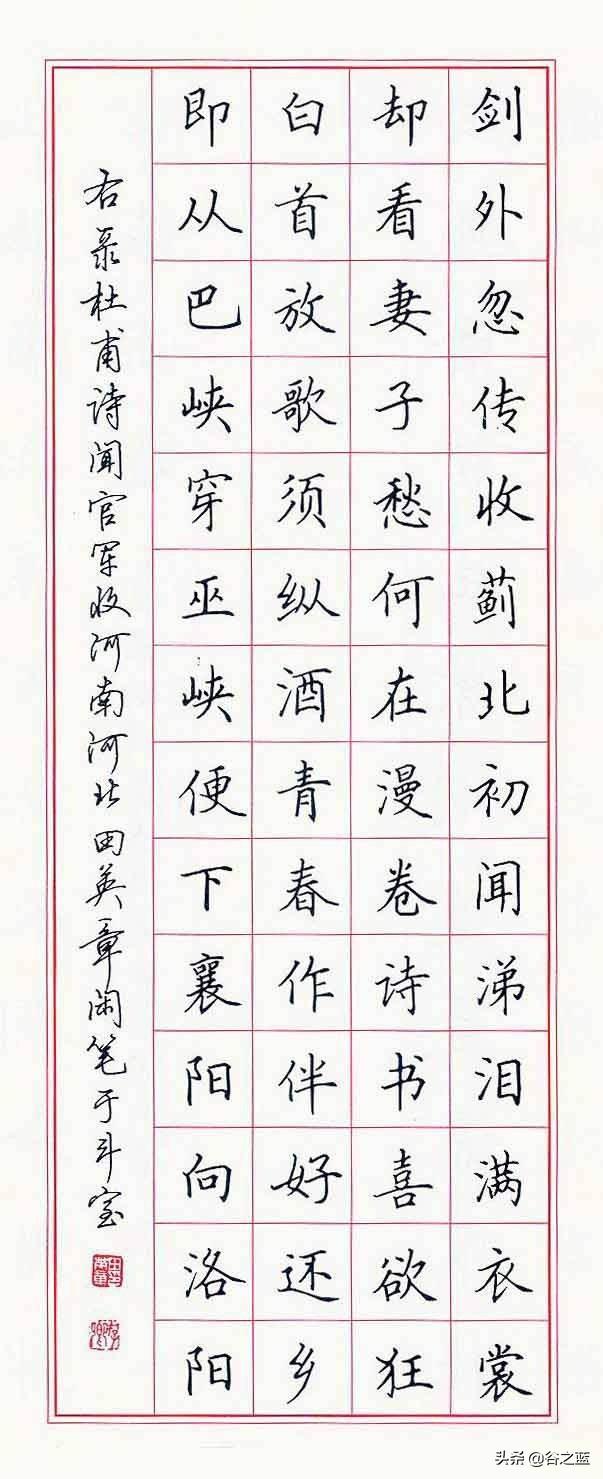 剑外忽传收蓟北初闻涕泪满衣裳
却看妻子愁何在漫卷诗书喜欲狂
白首放歌须纵酒青春作伴好还乡
即从巴峡穿巫峡便下襄阳向洛阳
右录杜甫诗闻官军收河南河北田英章闲笔于斗室
头条 @谷之蓝